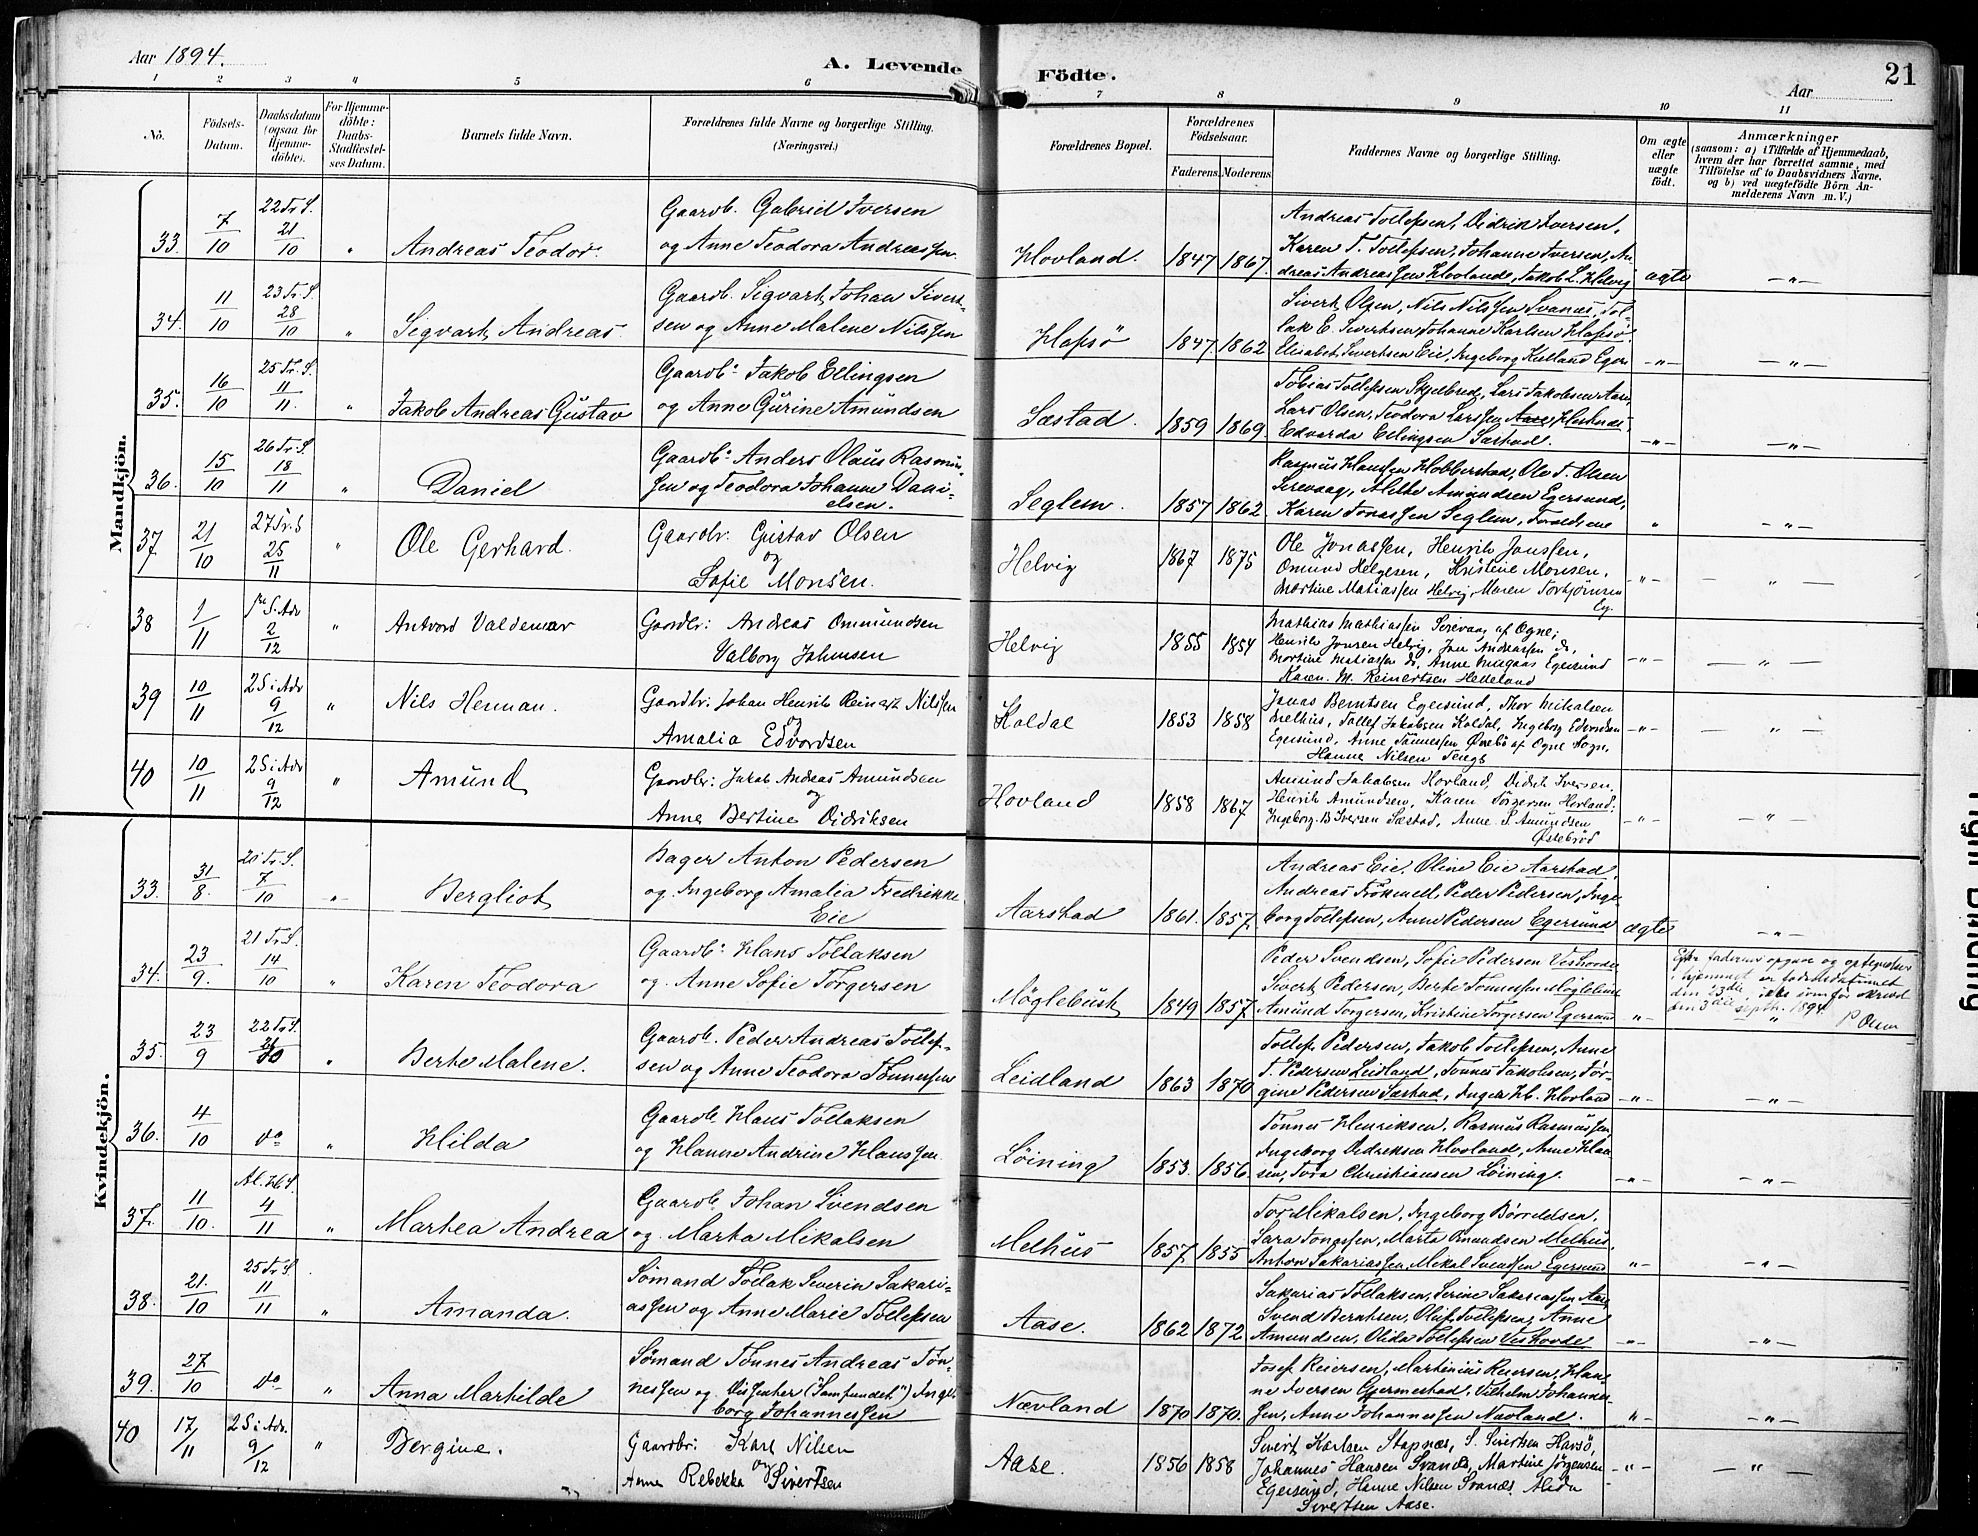 Aar 1894.
A. Levende Födte.
Aar
21
1 2 3 4 5 6 7 8 9 10 11
No.
Födsels-Datum.
Daabsdatum (ogsaa for Hjemme-döbte).
For Hjemme-döbte: Daabs-Stadfæstel-ses Datum.
Barnets fulde Navn.
Forældrenes fulde Navne og borgerlige Stilling. (Næringsvei.)
Forældrenes Bopæl.
Forældrenes Födselsaar.
Faderens. Moderens.
Faddernes Navne og borgerlige Stilling.
Om ægte eller uægte födt.
Anmærkninger
(saasom: a) i Tilfælde af Hjemmedaab,
hvem der har forrettet samme, med
Tilföielse af to Daabsvidners Navne,
og b) ved uægtefödte Börn An-
melderens Navn m. V.)
Mandkjön.
33. 7/10 22 Tr. S. 21/10 " Andreas Teodor.
Gaardb. Gabriel Iversen
og Anne Teodora Andreassen.
Hovland. 1847 1867.
Andreas Tollefsen, Didrik Iversen,
Karen T. Tollefsen, Johanne Iversen, An-
dreas Andreassen Hovland, Jakob L. Helvig
ægte -"-
34. 11/10 23 Tr. S. 28/10 " Segvart Andreas.
Gaardb. Segvart Johan Sivert-
sen og Anne Malene Nilssen
Hafsö 1847. 1862
Sivert Olsen, Nils Nilssen Svanes, Tol-
lak E. Sivertsen Johanne Karlsen Hafsö.
Elisabet Sivertsen Eie, Ingeborg Eger
-"- -"-
35. 16/10 25 Tr. S. 11/11. " Jakob Andreas Gustav
Gaardb. Jakob Ellingsen
og Anne Gurine Amundsen
Sæstad. 1859 1869.
Tobias Tollefsen Skjelbred, Lars Jakobsen Aase,
Lars Olsen, Teodora Larssen
Edvarda Ellingsen Sæstad.
-"- -"-
36. 15/10 26 Tr. S. 18/11 " Daniel
Gaardb. Anders Olaus Rasmus-
sen og Teodora Johanne Dani-
elsen.
Seglem. 1857 1862.
Rasmus Hanssen Hobberstad, Ole T. Olsen
Sirevaag, Alette Amundsen Egersund,
Karen Jonassen Seglem, Forældrene
" -"-
37 21/10 27 Tr. S 25/11 " Ole Gerhard.
Gaardbr. Gustav Olsen
og
Sofie Monsen.
Helvig 1867 1875
Ole Jonassen, Henrik Jonssen,
Omund Helgesen, Kristine Monsen,
Martine Matiassen Helvig, Maren Torbjørnsen
Eg.
-"- -"-
38 1/11 1ste S. Adv 2/12 " Antvord Valdemar
Gaardbr: Andreas Ommundsen
Valborg Johnsen
Helvig 1855 1854
Mathias Mathiassen Sirevaag af Ogne;
Henrik Jonsen Helvig, Jon Andreassen do,
Martine Matiassen do, Anne Egersund
Karen M. Reinertsen Hedeland
-"- -"-
39 10/11 2 S i Adv 9/12 " Nils Herman.
Gaardbr: Johan Henrik Reinart Nilssen
og
Amalia Edvardsen
Koldal 1853 1858
Jonas Berntsen Egersund, Thor Mikalsen
Melhus, Tollef Jakobsen Koldal, Ingeborg Edvardsen
Egersund, Anne Tønnessen Ørebø af Ogne Sogn,
Hanne Nilsen Tengs
-"- "
40 10/11 2 S i Adv 9/12 " Amund
Gaardbr: Jakob Andreas Amundsen
og
Anne Bertine Didriksen
Hovland 1858 1867
Amund Jakobsen Hovland, Didrik Iversen,
Henrik Amundsen, Karen Torgersen Hovland.
Ingeborg B Iversen Sæstad, Anne S Amundsen
Østebrød
-"- -"-
Kvindekjön.
33. 31/8. 20 Tr. S. 7/10 " Bergliot
Bager Anton Pedersen
og Ingeborg Amalia Fredrikke
Eie
Aarstad 1861. 1857.
Andreas Eie, Oline Eie Aarstad.
Andreas Peder Pedersen, Inge-
borg Tollefsen, Anne Pedersen Egersund
ægte -"-
34. 23/9. 21 Tr. S. 14/10 " Karen Teodora
Gaardb. Hans Tollaksen
og Anne Sofie Torgersen
Møglebust 1849 1857.
Peder Svendsen, Sofie Pedersen Veshovde
Sivert Pedersen, Berte Tønnessen Møglebust
Amund Torgersen, Kristine Torgersen Egersund
"
Efter faderens opgave og optegnelser
i hjemmet er fødselsdatumet
den 13de, ikke som før skrevet
den 23de septbr. 1894
P. Olsen
35. 23/9 22 Tr. S. 21/10 " Berte Malene.
Gaardb. Peder Andreas Tollef-
sen og Anne Teodora Tønnessen
Leidland 1863 1870
Tollef Pedersen, Jakob Tollefsen, Anne
T. Pedersen Leidland, Tønnes Jakobsen, Tor-
gine Pedersen Sæstad, Inger H. Hovland
-"- -"-
36. 4/10 do " Hilda
Gaardb. Hans Tollaksen
og Hanne Andrine Hanssen.
Løining 1853. 1856.
Tønnes Henriksen, Rasmus Rasmussen,
Ingeborg Didriksen Hovland, Anne Han-
sen, Tora Christiansen Løining.
-"- -"-
37. 11/10. Al. H. S. 4/11 " Martea Andrea
Gaardb. Johan Svendsen
og Marta Mikalsen
Melhus 1857. 1855
Tor Mikalsen, Ingeborg Børreldsen,
Sara Jonassen, Marta Omundsen Melhus,
Anton Sakariassen, Mikal Svendsen Egersund
-"- -"-
38. 21./10 25 Tr. S. 11/11 " Amanda.
Sømand Tollak Severin Sakari-
assen og Anne Marie Tollefsen
Aase. 1862 1872.
Sakarias Tollaksen, Serine Sakariassen Aase
Svend Berntsen, Oluf Tollefsen, Anne
Amundsen, Olida Tollefsen Veshovde
-"- -"-
39. 27/10 do " Anna Martilde
Sømand Tønnes Andreas Tøn-
nessen og Dissenter ("Samfundet") Inge-
borg Johannessen
Nævland 1870 1870.
Josef Reiersen, Martinius Reiersen, Han-
ne Iversen Gjermestad, Vilhelm Johannes-
sen, Anne Johannessen Nævland.
" -"-
40 17/11 2 S i Adv. 9/12 " Bergine.
Gaardbr: Karl Nilsen
og
Anne Rebekka Sivertsen
Aase. 1856 1858
Sivert Karlsen Stapnes, S. Sivertsen Hafsö,
Johannes Hansen Svanes, Martine Jørgensen
Egersund, Hanne Nilsen Svanes Alida
Sivertsen Aase.
-"- -"-
Tight Binding